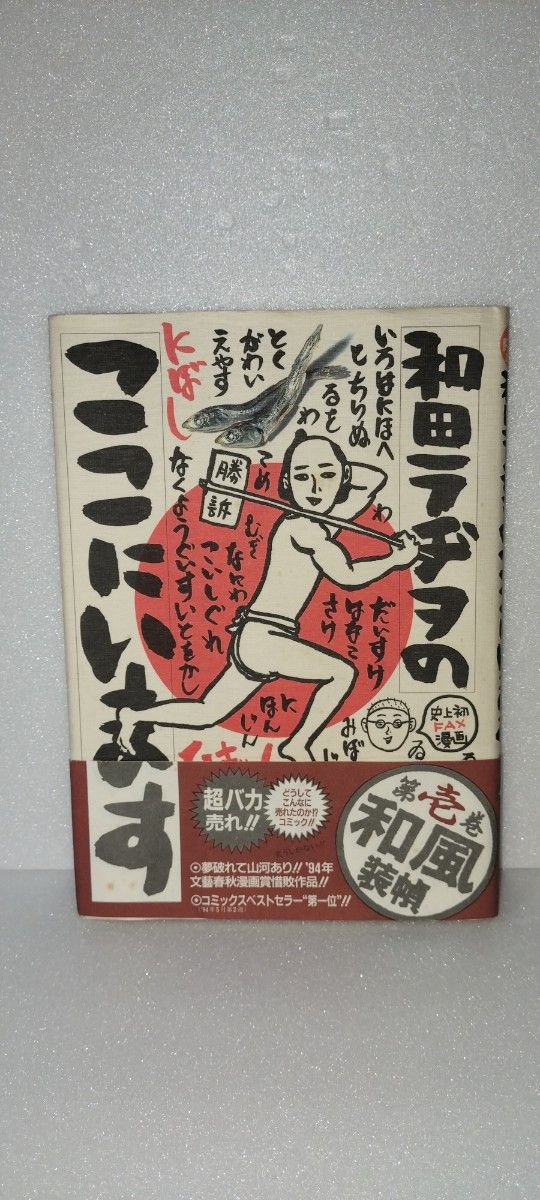 和田ラヂヲの
ここにいます
いろはにほへ
とちりぬ
るを
わ
わ
とく
がわい
えやす
にぼし
勝訴
こめ
むぎ
なにわ
こいしぐれ
なくようぐいすいとをかし
だいすけ
はなこ
さけ
にほんじん
みぼ
史上初
FAX
漫画
ゐ
第壱巻
和風
装幀
超バカ
売れ!!
どうして
こんなに
売れたのか!?
コミック!!
◉夢破れて山河あり!! '94年
文藝春秋漫画賞惜敗作品!!
◉コミックスベストセラー“第一位”!!
('94年5月第2週)